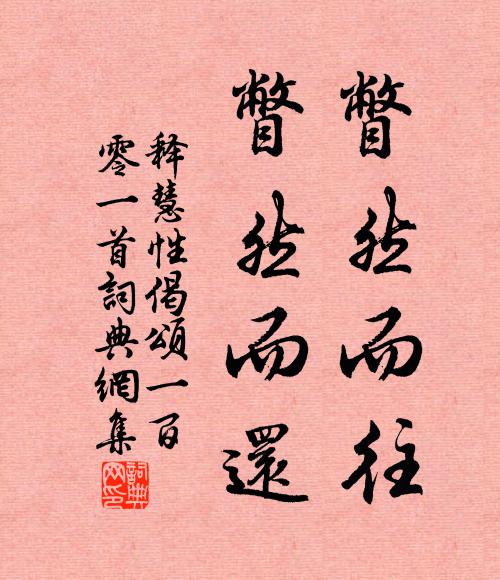 瞥然而往
瞥然而還
释慧性偈頌一百
零一首詞典網集
詞典網印